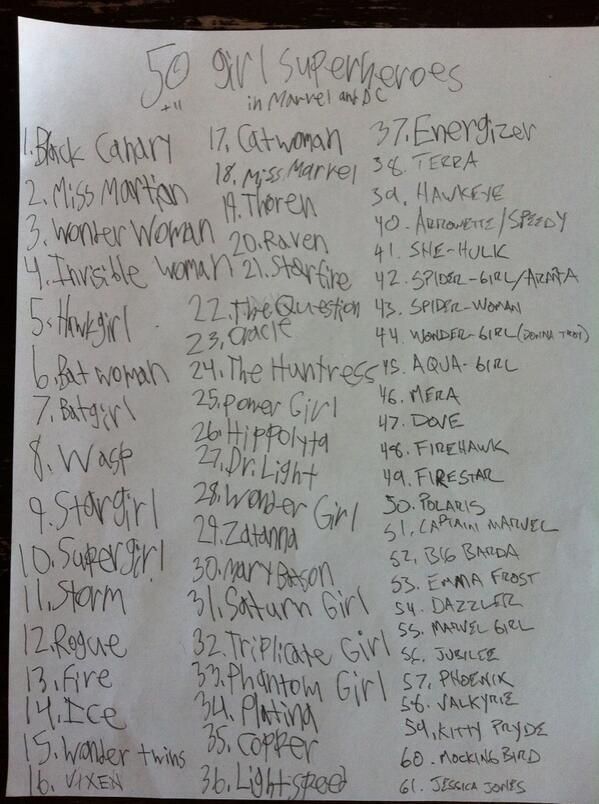 50 girl superheroes
+11
in Marvel and DC
1. Black Canary
2. Miss Martian
3. Wonder Woman
4. Invisible Woman
5. Hawkgirl
6. Batwoman
7. Batgirl
8. Wasp
9. Stargirl
10. Supergirl
11. Storm
12. Rogue
13. Fire
14. Ice
15. Wonder twins
16. VIXEN
17. Catwoman
18. Miss Marvel
19. Thoren
20. Raven
21. Starfire
22. The Question
23. Oracle
24. The Huntress
25. Power Girl
26. Hippolyta
27. Dr. Light
28. Wonder Girl
29. Zatanna
30. Mary Batson
31. Saturn Girl
32. Triplicate Girl
33. Phantom Girl
34. Platina
35. Copper
36. Lightspeed
37. Energizer
38. TERRA
39. HAWKEYE
40. ARROWETTE/SPEEDY
41. SHE-HULK
42. SPIDER-GIRL/ARAÑA
43. SPIDER-WOMAN
44. WONDER-GIRL (DONNA TROY)
45. AQUA-GIRL
46. MERA
47. DOVE
48. FIREHAWK
49. FIRESTAR
50. POLARIS
51. CAPTAIN MARVEL
52. BIG BARDA
53. EMMA FROST
54. DAZZLER
55. MARVEL GIRL
56. JUBILEE
57. PHOENIX
58. VALKYRIE
59. KITTY PRYDE
60. MOCKING BIRD
61. JESSICA JONES